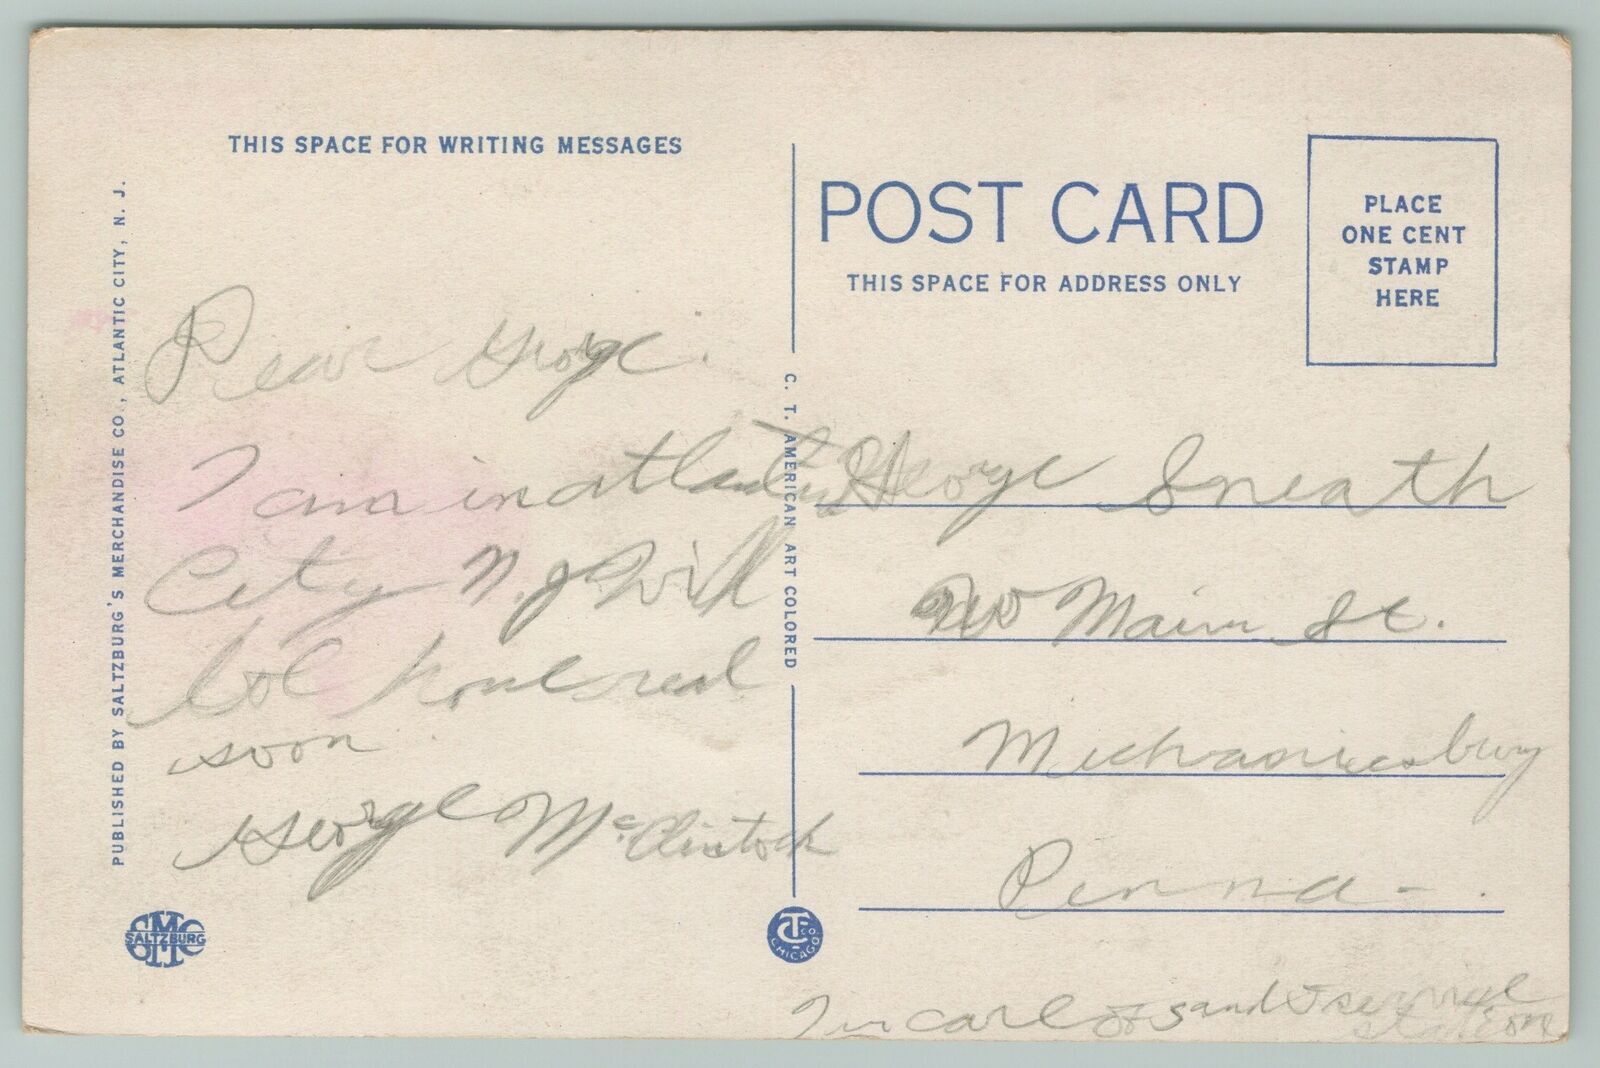 THIS SPACE FOR WRITING MESSAGES
PUBLISHED BY SALTZBURG'S MERCHANDISE CO., ATLANTIC CITY, N. J.
Dear George.
I am in atlantic
City N.J Will
be home real
soon.
George McClintock
SMC
SALTZBURG
C. T. AMERICAN ART COLORED
CT CO.
CHICAGO
POST CARD
THIS SPACE FOR ADDRESS ONLY
PLACE
ONE CENT
STAMP
HERE
George Sneath
Main St.
Mechanicsburg
Penna-.
In care of sand service
station